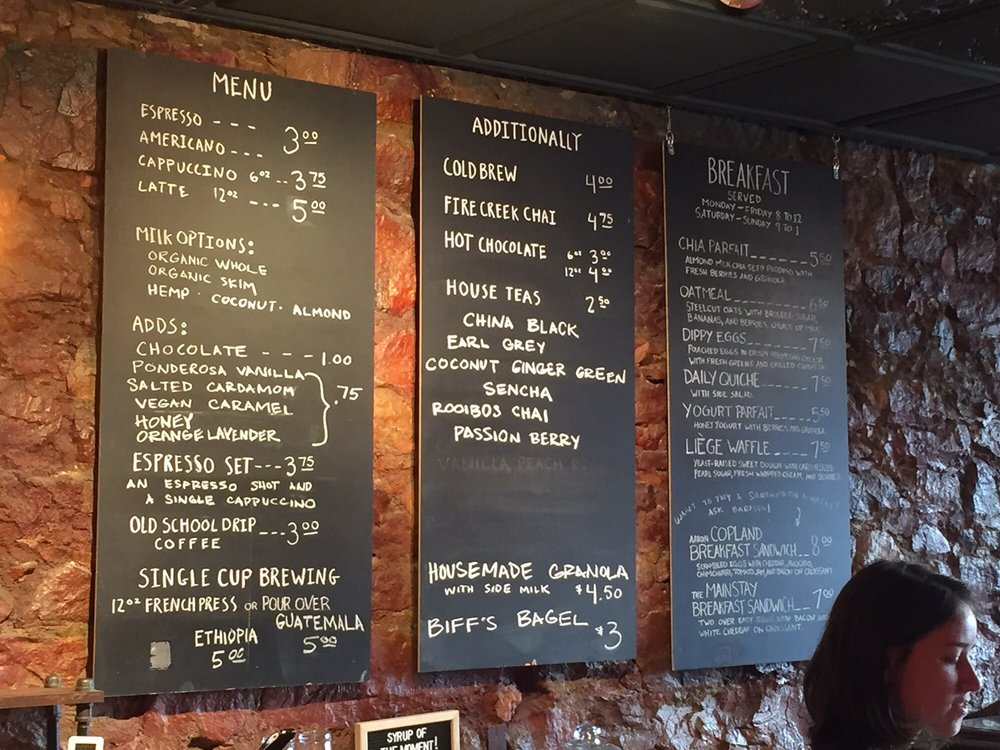 MENU
ESPRESSO - - -
AMERICANO - - - 3.00
CAPPUCCINO 6oz - - 3.75
LATTE 12oz - - - 5.00
MILK OPTIONS:
ORGANIC WHOLE
ORGANIC SKIM
HEMP · COCONUT · ALMOND
ADDS:
CHOCOLATE - - - - 1.00
PONDEROSA VANILLA
SALTED CARDAMOM
VEGAN CARAMEL .75
HONEY
ORANGE LAVENDER
ESPRESSO SET - - - 3.75
AN ESPRESSO SHOT AND
A SINGLE CAPPUCCINO
OLD SCHOOL DRIP - - - 3.00
COFFEE
SINGLE CUP BREWING
12oz FRENCH PRESS OR POUR OVER
GUATEMALA
ETHIOPIA 5.00
5.00
ADDITIONALLY
COLD BREW 4.00
FIRECREEK CHAI 4.75
HOT CHOCOLATE 6oz 3.00
12oz 4.00
HOUSE TEAS 2.50
CHINA BLACK
EARL GREY
COCONUT GINGER GREEN
SENCHA
ROOIBOS CHAI
PASSION BERRY
VANILLA PEACH
HOUSEMADE GRANOLA
WITH SIDE MILK $4.50
BIFF'S BAGEL $3
BREAKFAST
SERVED
MONDAY - FRIDAY 8 TO 12
SATURDAY - SUNDAY 9 TO 1
CHIA PARFAIT 5.50
ALMOND MILK CHIA SEED PUDDING WITH
FRESH BERRIES AND GRANOLA
OATMEAL 6.50
STEELCUT OATS WITH BRULEED SUGAR,
BANANAS, AND BERRIES. CHOICE OF MILK
DIPPY EGGS 7.50
POACHED EGGS IN CRISPY PARMESAN CHEESE
WITH FRESH GREENS AND GRILLED CIABATTA
DAILY QUICHE 7.50
WITH SIDE SALAD
YOGURT PARFAIT 5.50
HONEY YOGURT WITH BERRIES AND GRANOLA
LIÈGE WAFFLE 7.50
YEAST-RAISED SWEET DOUGH WITH CARAMELIZED
PEARL SUGAR, FRESH WHIPPED CREAM, AND BERRIES
WANT TO TRY A SANDWICH ON A
ASK BARISTA!
AARON COPLAND
BREAKFAST SANDWICH 8.00
SCRAMBLED EGGS WITH CHEDDAR, AVOCADO,
CHIMICHURRI, TOMATO JAM, AND BACON ON CROISSANT
THE MAINSTAY
BREAKFAST SANDWICH 7.00
TWO OVER EASY EGGS WITH BACON AND
WHITE CHEDDAR ON CROISSANT
SYRUP OF
THE MOMENT!